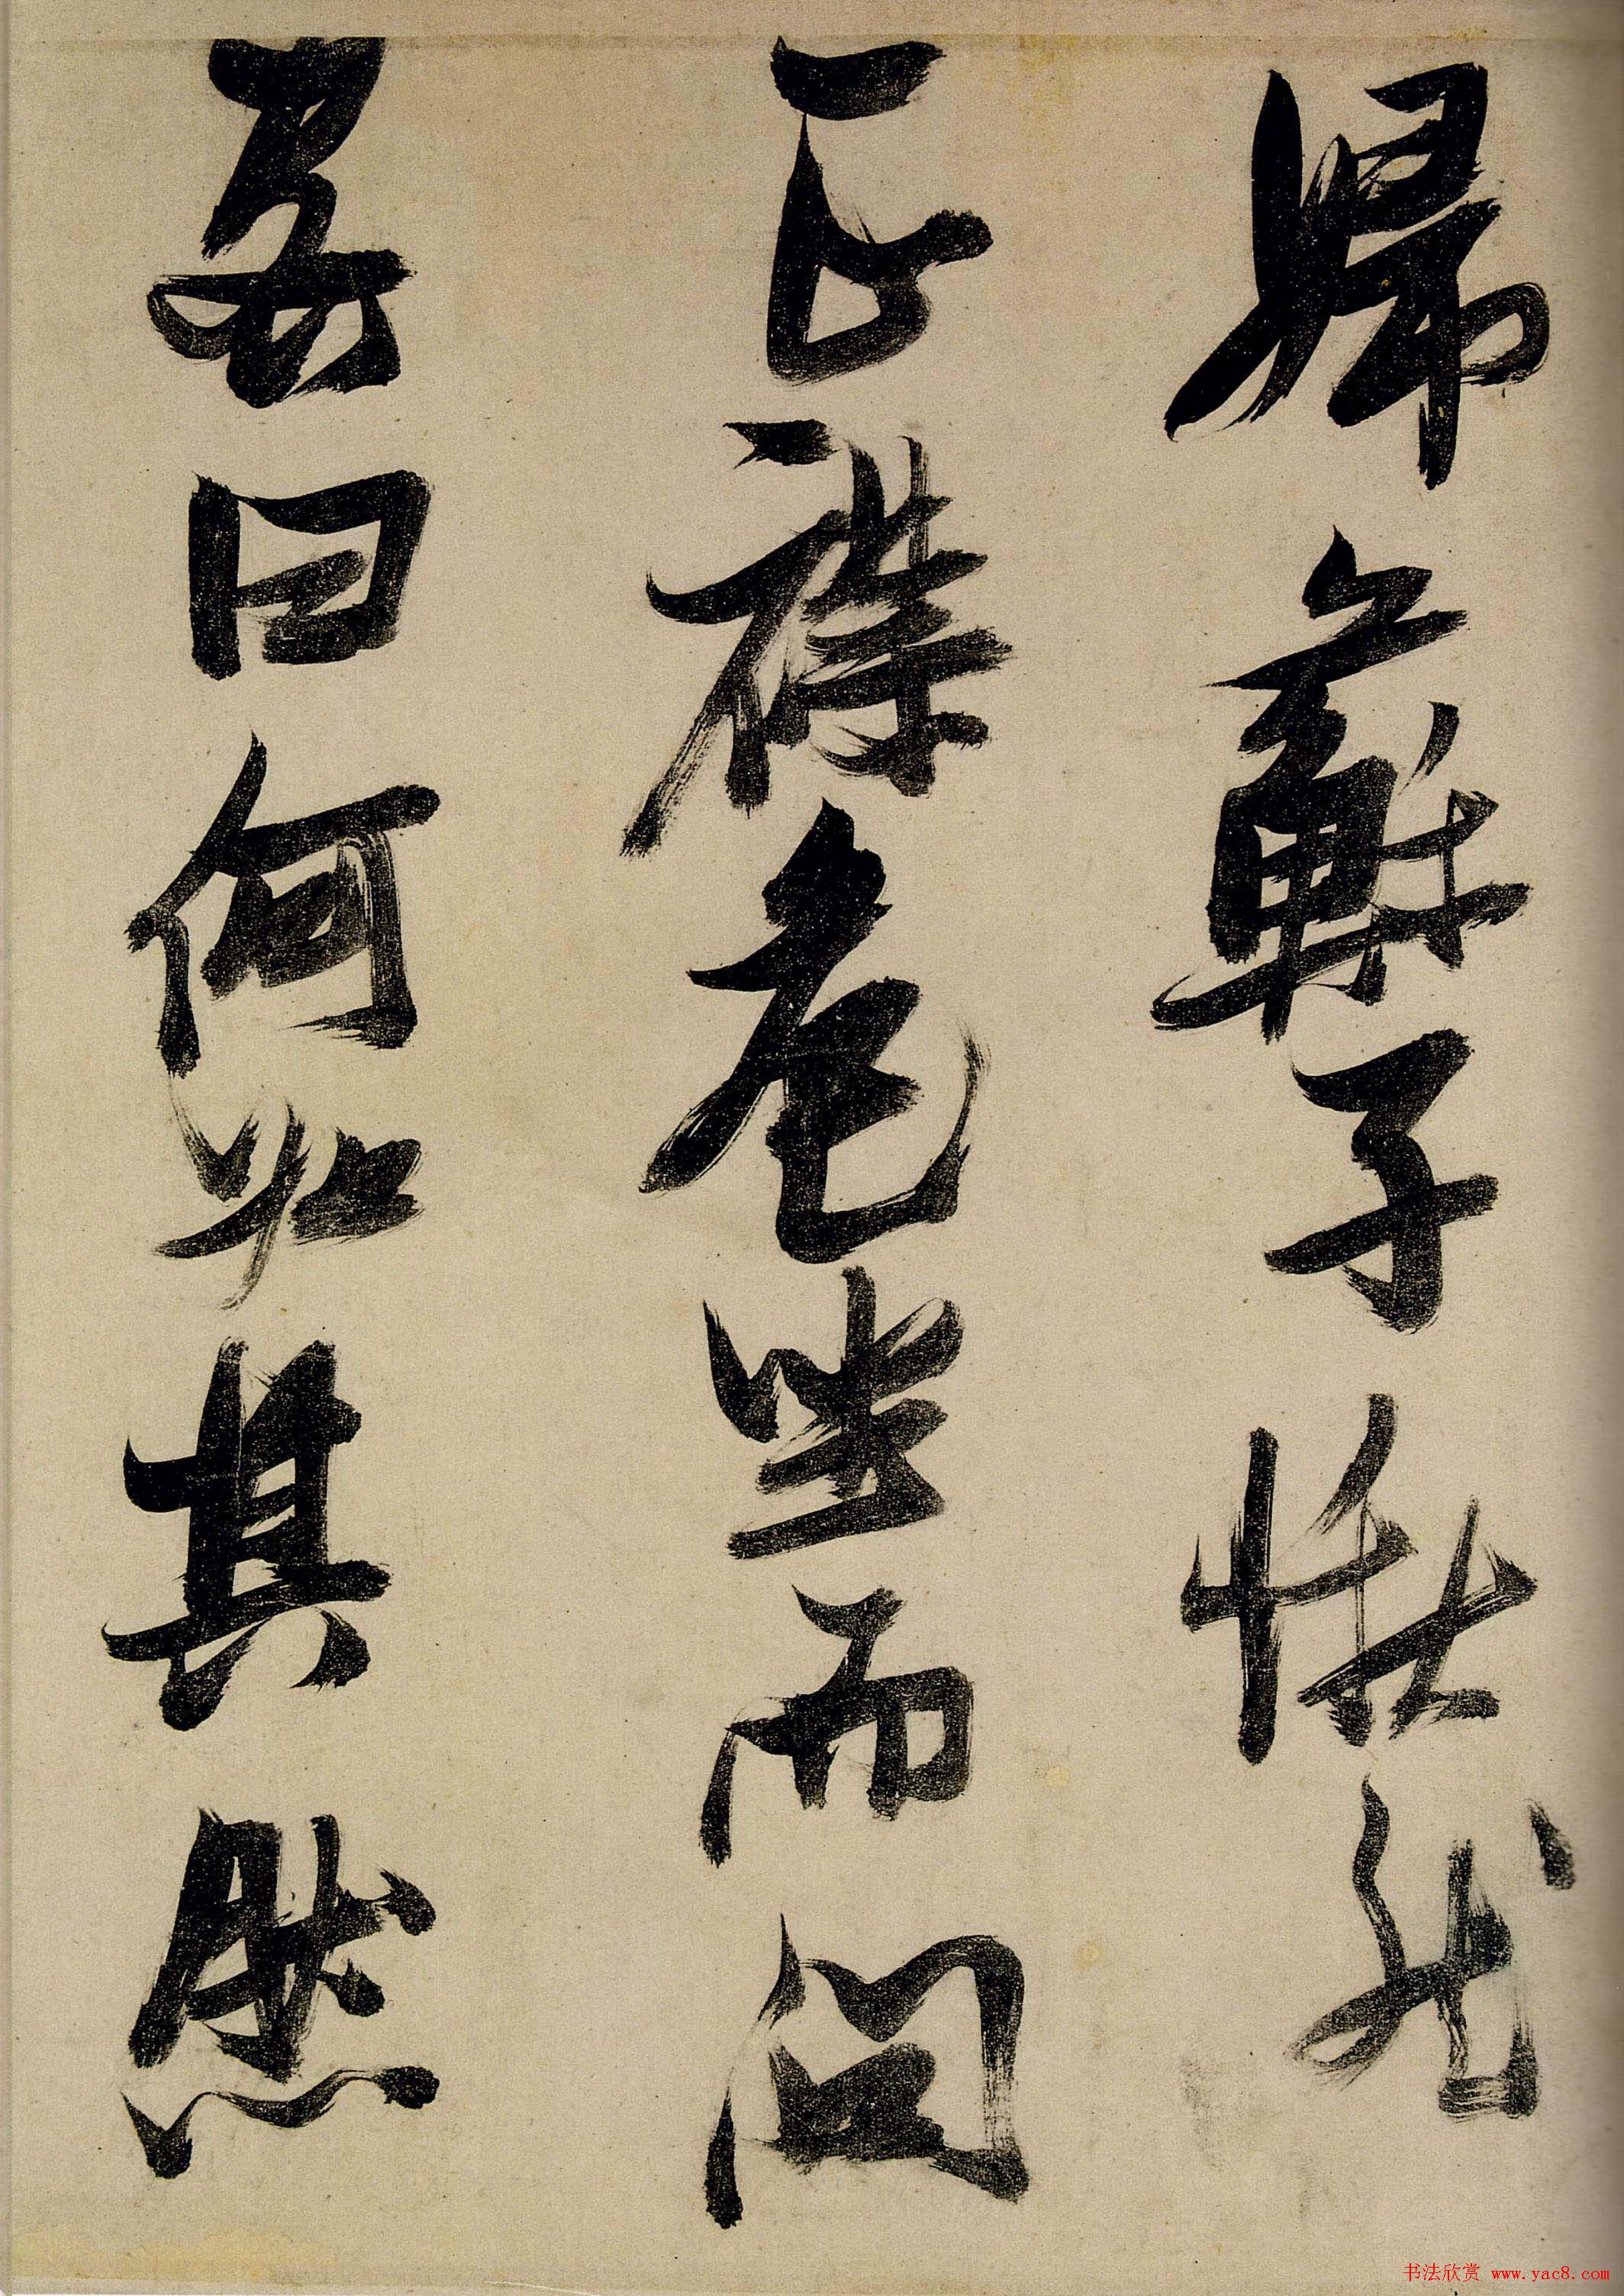 婦蘇子愀然
正襟危坐而問
客曰何為其然
书法欣赏 www.yac8.com